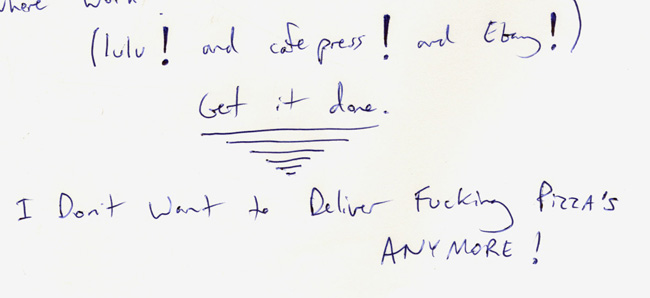 where
(lulu! and cafepress! and Ebay!)
Get it done.
I Don't Want to Deliver Fucking Pizza's
ANYMORE!